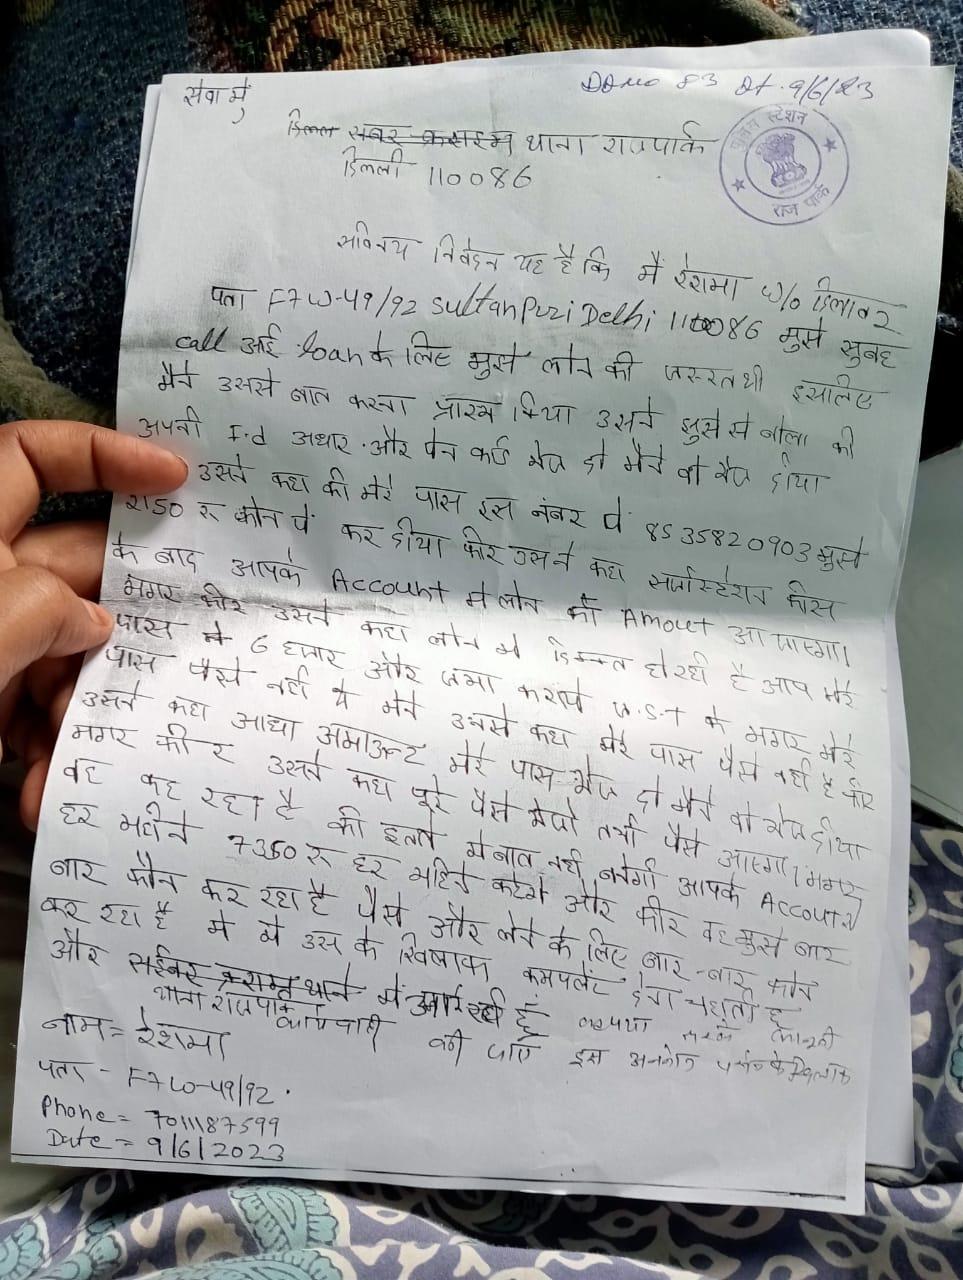 सेवा में
DD No 83 Dt. 9/6/23
थाना राजपार्क
दिल्ली 110086
पुलिस स्टेशन
राज पार्क
सविनय निवेदन यह है कि मैं रेशमा W/o दिलावर
पता F7 W-49/92 SultanPuri Delhi 110086 मुझे सुबह
call आई loan के लिए मुझे लोन की जरूरत थी इसलिए
मैने उससे बात करना प्रारम्भ किया उसने मुझे से बोला की
अपनी I.d अधार और पेन कार्ड भेज दो मैने वो भेज दीया
उसने कहा की मेरे पास इस नंबर पे 8535820903 मुझे
2150 रू फोन पे कर दीया फीर उसने कहा फीस
के बाद आपके Account मे लोन की Amout आ जाएगा।
मगर फीर उसने कहा लोन मे दिक्कत हो रही है आप मेरे
पास 6 हजार और जमा कराये G.S.T के मगर मेरे
पास पैसे नहीं थे मैने उनसे कहा मेरे पास पैसे नही है फीर
उसने कहा आधा अमाउन्ट मेरे पास भेज दो मैने वो भेज दीया
मगर फीर उसने कहा पूरे पैसे भेजो तभी पैसे आएगा। मगर
वह कह रहा है की इतने मे बात नही बनेगी आपके Account
हर महीने 7350 रू हर महिने कटेगे और फीर वह मुझे बार
बार फोन कर रहा है पैसे और लेने के लिए बार-बार फोन
कर रहा है मे उस के खिलाफ कमपलेंट देना चहाती हूँ
और थाने में आई हूँ
थाना राजपार्क की जाए इस के खिलाफ
नाम = रेशमा
पता - F7 W-49/92.
Phone = 7011187599
Date = 9/6/2023